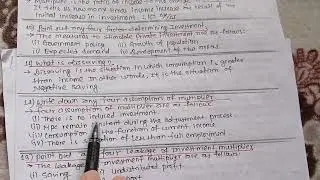 Multiplier is the ratio of
It tells us how many times income
initial increase in investment
10) Point out any four factor determining investment
The measures to stimulate private investment are as follows:
(i) Government policy (ii) Growth of population
(iii) Expected demand (iv) Development in the areas
11) What is dissaving?
→ Dissaving is the situation in which consumption is greater
than income in other words, it is the situation of
negative saving
12) Write down any four assumption of multiplier
four assumption of multiplier are as follows
(i) There is no induced investment
(ii) remain constant during the adjustment process
(iii) Consumption is the function of current income
(iv) There is situation of less than full employment
13) Point out four leakage of investment multiplier
The leakage of investment multiplier are as follows
(i) Saving (ii) Undistributed profit